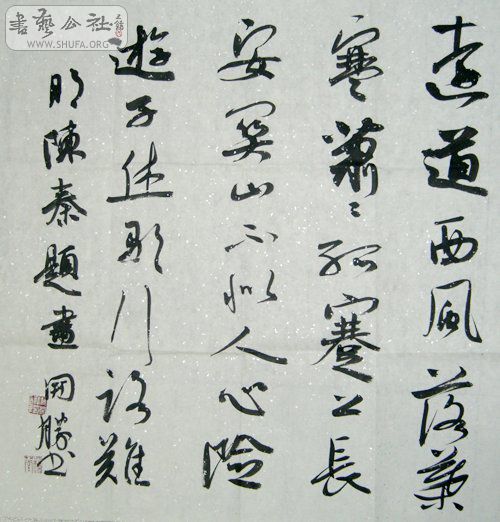 書藝公社
WWW.SHUFA.ORG
遠道西風落葉
寒蕭々孤蹇上長
安関山不似人心險
遊子休歌行路難
明陳秦題畫 開勝書